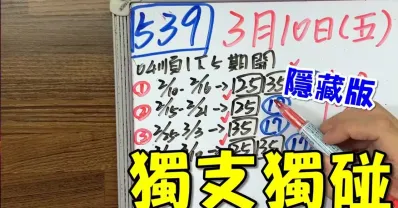 539 3月10日(五)
04順115期開
① 2/10-2/16→ 25 35
隱藏版
② 2/15-2/21→ 25 17
③ 2/25-3/3→ 35 17
35
獨支獨碰